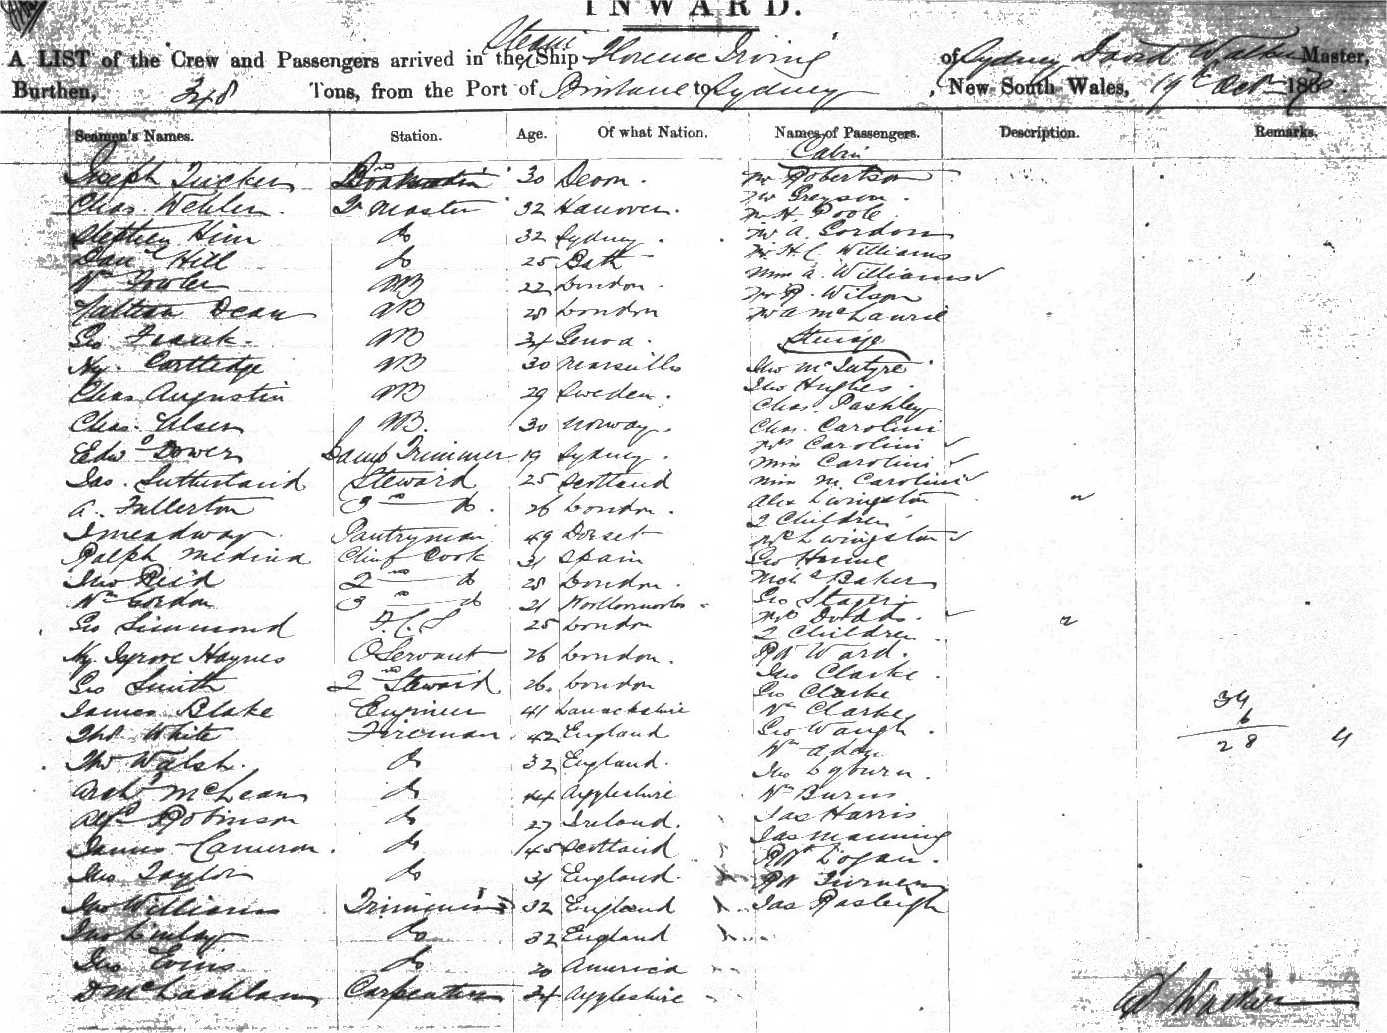 INWARD.
A LIST of the Crew and Passengers arrived in the Steam Ship Florence Irving of Sydney David Walker Master,
Burthen, 348 Tons, from the Port of Brisbane to Sydney, New South Wales, 19th Octr 18
Seamen's Names. Station. Age. Of what Nation. Names of Passengers. Description. Remarks.
Cabin
Joseph Tucker 30 Devon. Mr Robertson
Chas Wehler. Qr Master 32 Hanover. Mr Greyson.
Mr H. Poole
Stephen Him do 32 Sydney. Mr A. Gordon
Danl Hill do 25 Bath Mr H. C. Williams
Wm Fowler AB 22 London. Miss A. Williams
Mr R. Wilson
Dean AB 28 London Mr A McLaurie
Geo Frank. AB 34 Genoa. Steerage
Hy. Cartledge AB 30 Marseilles Jno McIntyre
Chas Augustin AB 29 Sweden. Jno Hughes.
Chas. Pashley
Chas. Olsen AB. 30 Norway. Chas. Carolini
Mrs Carolini
Edwd Dower Lamp Trimmer 19 Sydney. Miss Carolini
Jas. Sutherland Steward 25 Scotland Miss M. Carolini
A. Fullerton 3rd do. 26 London. Alex Livingston 2
2 Children
J Meadway Pantryman 49 Dorset Mrs Livingston
Ralph Medina Chief Cook 31 Spain Geo Horne
Jno Reid 2nd do 28 London. Nichs Baker
Wm Gordon 3rd do 21
Geo Simmond F.C.S 25 London Mrs Dodds. 2
2 Children
Hy. Haynes O Servant 26 London. Rt Ward.
Jno Clarke.
Geo Smith 2nd Steward 26. London Geo Clarke
James Blake Engineer 41 Lanarkshire Wm Clarke 34
6
Thos White Fireman. 42 England Geo Waugh. 28 4
Wm Addy
Thos Walsh. do 32 England. Jno Ogburn.
Archd McLean do 44 Ayrleshire Wm Burns
Alfd Robinson do 27 Ireland. Jas Harris
Jas Manning
James Cameron. do 45 Scotland Rt Logan.
Jno Taylor do 31 England. Rt Turner
Jno Williams Trimmer 32 England Jas Rasleigh
Jno Finlay do 32 England
Jno Evins do 20 America
D McLachlan Carpenter 34 Ayrleshire
D Walker